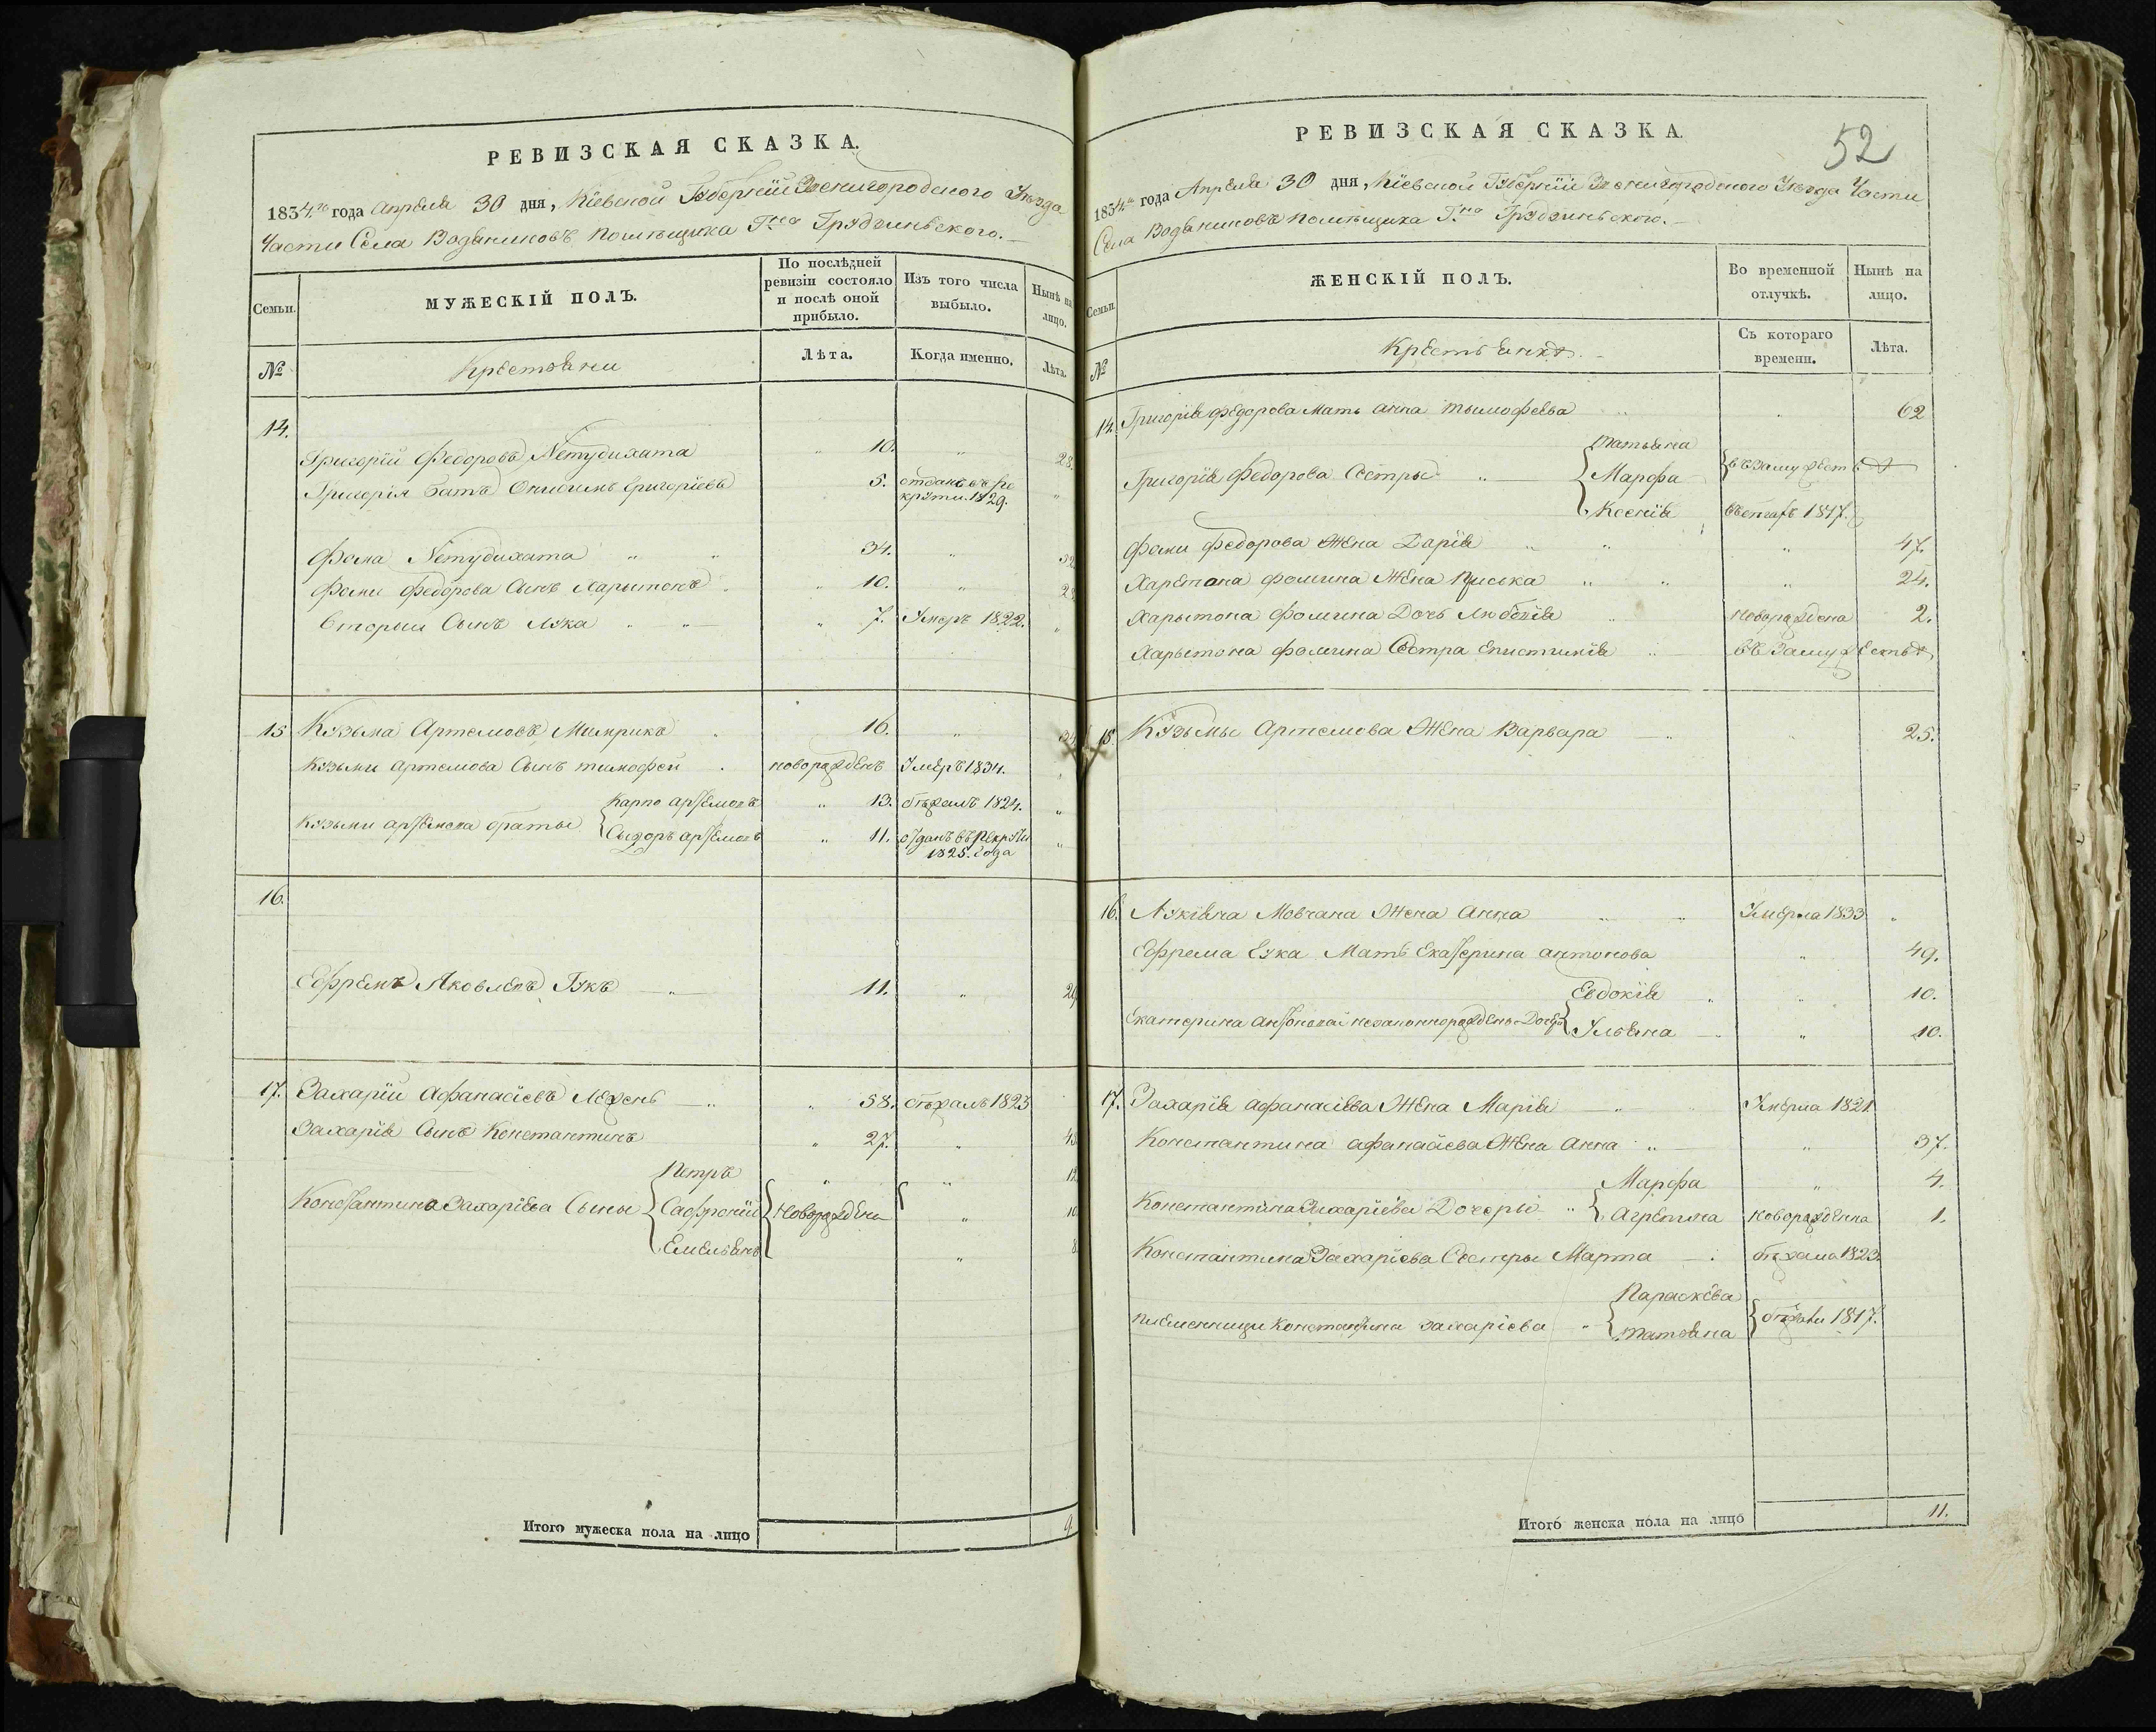 РЕВИЗСКАЯ СКАЗКА.
1834го года Апреля 30 дня, Кіевской Губерніи Звенигородского Уезда
Части Села Водяниковъ помѣщика Гна Грудзинского.
Семьи.
МУЖЕСКІЙ ПОЛЪ.
По послѣдней ревизіи состояло и послѣ оной прибыло.
Изъ того числа выбыло.
Нынѣ на лицо.
№
Крестьяни
Лѣта.
Когда именно.
Лѣта.
14.
Григорій Федоровъ Нетудихата " 10. " 28.
Григорія Братъ Григоріевъ 5. отданъ въ ре
крути 1829. "
Фома Нетудихата " " 34. "
Фоми Федорова Сынъ Харытонъ " 10. "
Вторый Сынъ Лука " " " 7. Умеръ 1822. "
15 Кузьма Артемовъ Мимрикъ " 16. "
Кузьми Артемова Сынъ тимофей новорожденъ Умеръ 1834.
Карпо артемовъ " 13. бѣжалъ 1824. "
Кузьми артемова браты
Сыдоръ артемовъ " 11. отданъ въ рекруты "
1825. года
16.
Ефремъ Яковлевъ Гукъ " 11. "
17. Захарій Афанасіевъ Лежень " " 58. бѣжалъ 1823
Захарія Сынъ Константинъ " 27. "
Петръ " "
Константина Захаріева Сыны Сафроній новорождени " 10
Емельянъ " 8
Итого мужеска пола на лицо 9.
52
РЕВИЗСКАЯ СКАЗКА.
1834го года Апреля 30 дня, Кіевской Губерніи Звенигородского Уезда Части
Села Водяниковъ помѣщика Гна Грудзинского.
Семьи.
ЖЕНСКІЙ ПОЛЪ.
Во временной отлучкѣ.
Нынѣ на лицо.
№
Крестьянки
Съ котораго времени.
Лѣта.
14. Григорія Федорова Мать анна тымофеева " " 62
татьяна
Григорія Федорова Сестры " Марфа въ Замужестве
Ксенія 1817.
Фоми Федорова Жена Дарія " " " 47.
Харетона фомина Жена Приська " " " 24.
Харытона фомина Дочь Любовія " новорождена 2.
Харытона фомина Сестра Епистимія " въ Замужестве
15. Кузьмы Артемова Жена Варвара " " 25.
16. Лукіяна Мовчана Жена Анна " " Умерла 1833 "
Ефрема Гука Мать Екатерина антонова " 49.
Евдокія " " 10.
Екатерина Антоновой незаконнорожденны Дочери
Ульяна " " 10.
17. Захарія афанасіева Жена Марія " " Умерла 1821
Константина афанасіева Жена Анна " " 37.
Марфа " 4.
Константина Захаріева Дочеры "
Агрепина новорожденна 1.
Константина Захаріева Сестры Марта бѣжала 1823.
Параскева
племенници Константина захаріева " бѣжали 1817.
татьяна
Итого женска пола на лицо 11.